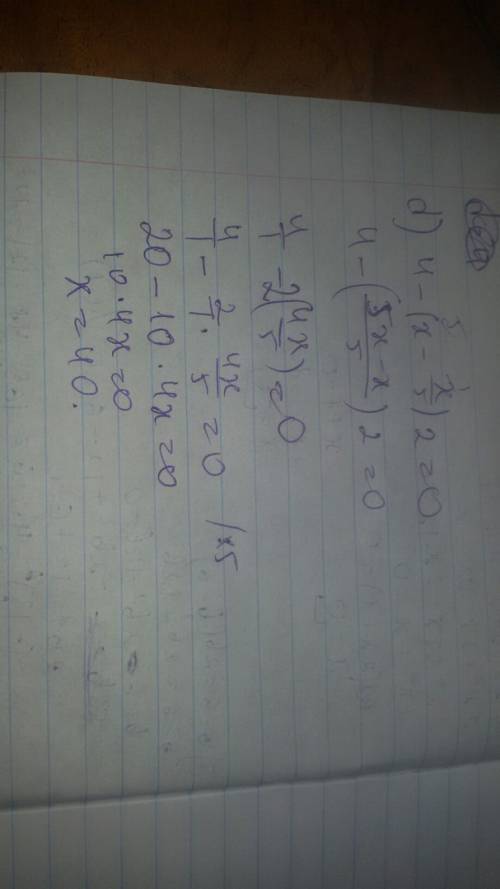 d) 4 - (x - x/5) 2 = 0
4 - ((5x - x)/5) 2 = 0
4/1 - 2(4x/5) = 0
4/1 - 2/1 · 4x/5 = 0 /x5
20 - 10 · 4x = 0
10 · 4x = 0
x = 40.